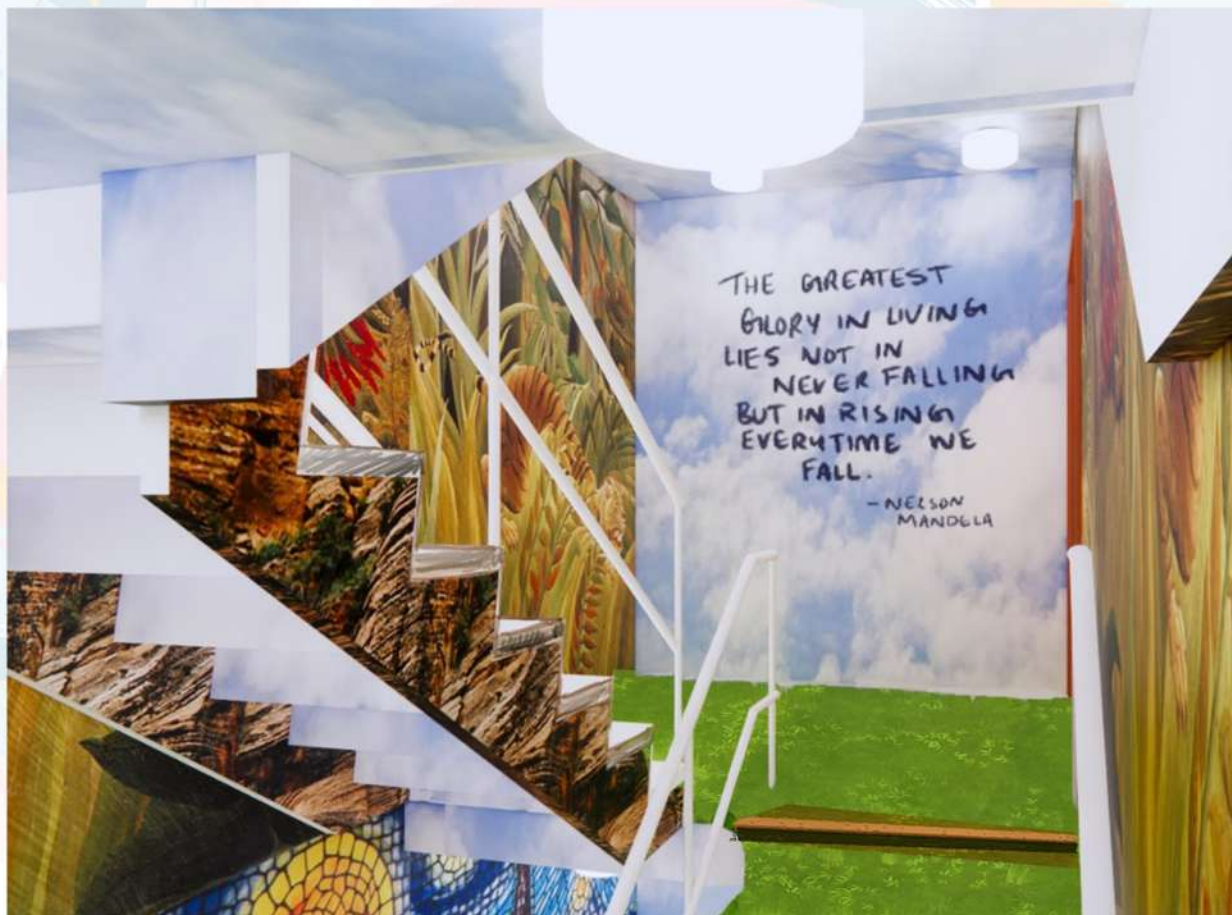 THE GREATEST
GLORY IN LIVING
LIES NOT IN
NEVER FALLING
BUT IN RISING
EVERYTIME WE
FALL.
- NELSON
MANDELA